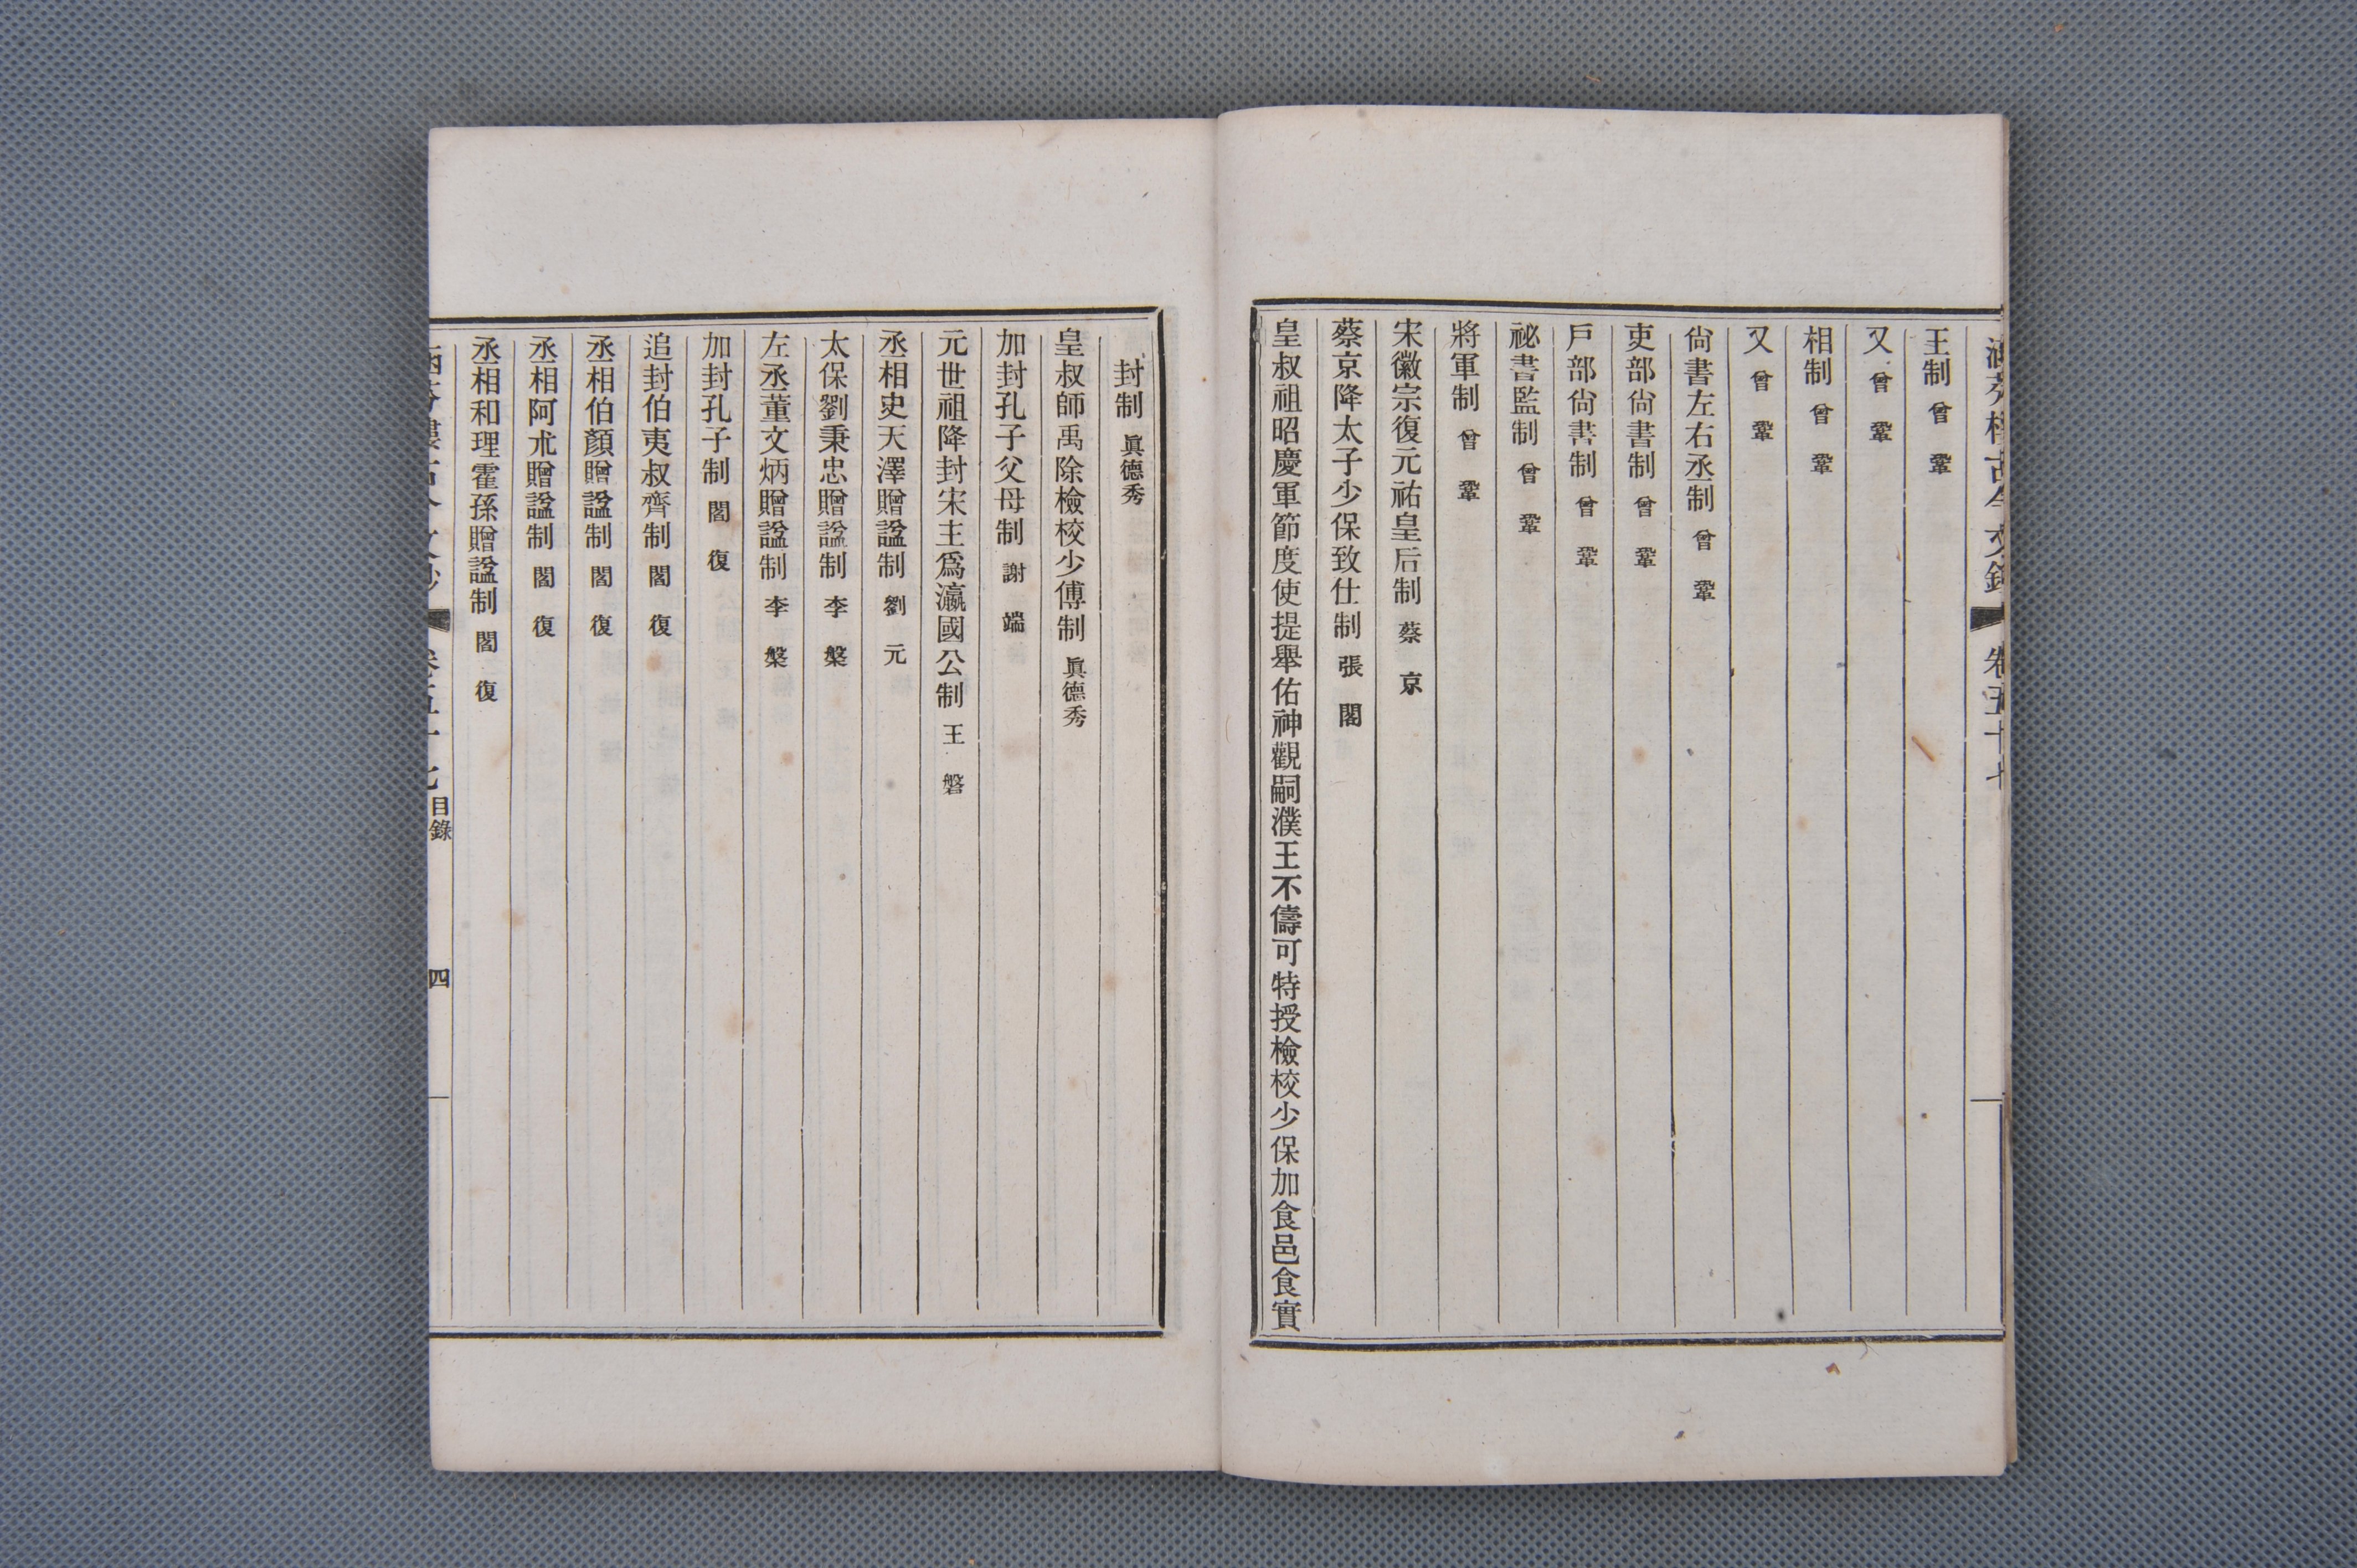 涵芬樓古今文鈔 卷五十七
王制 曾鞏
又 曾鞏
相制 曾鞏
又 曾鞏
尙書左右丞制 曾鞏
吏部尙書制 曾鞏
戶部尙書制 曾鞏
祕書監制 曾鞏
將軍制 曾鞏
宋徽宗復元祐皇后制 蔡京
蔡京降太子少保致仕制 張閣
皇叔祖昭慶軍節度使提舉佑神觀嗣濮王不儔可特授檢校少保加食邑食實
封制 眞德秀
皇叔師禹除檢校少傅制 眞德秀
加封孔子父母制 謝端
元世祖降封宋主爲瀛國公制 王磐
丞相史天澤贈諡制 劉元
太保劉秉忠贈諡制 李槃
左丞董文炳贈諡制 李槃
加封孔子制 閻復
追封伯夷叔齊制 閻復
丞相伯顏贈諡制 閻復
丞相阿朮贈諡制 閻復
丞相和理霍孫贈諡制 閻復
涵芬樓古今文鈔 卷五十七 目錄 四